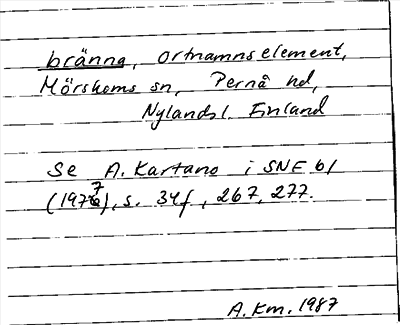 bränna, ortnamnselement,
Mörskoms sn, Pernå hd,
Nylands l. Finland
Se A. Kartano i SNF 61
(1977), s. 34f, 267, 277.
A.Km. 1987